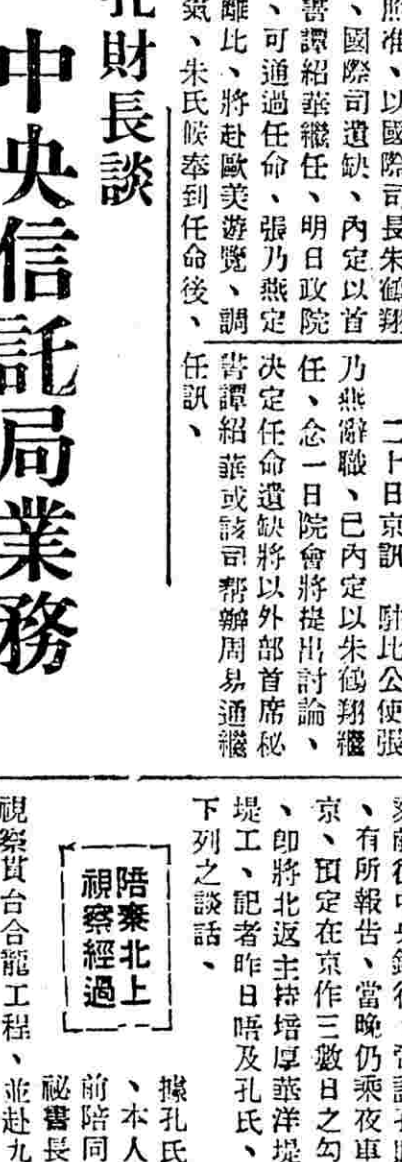 照准、以國際司長朱鶴翔
、國際司遺缺、內定以首
書譚紹華繼任、明日政院
、可通過任命、張乃燕定
離比、將赴歐美遊覽、調
氣、朱氏候奉到任命後、
二十日京訊　駐比公使張
乃燕辭職、已內定以朱鶴翔繼
任、念一日院會將提出討論、
决定任命遺缺將以外部首席秘
書譚紹華或該司帮辦周易通繼
任訊、
孔財長談
中央信託局業務
、有所報告、當晚仍乘夜車
京、預定在京作三數日之勾
、卽將北返主持培厚華洋堤
堤工、記者昨日唔及孔氏、
下列之談話、
陪秦北上
視察經過
據孔氏
、本人
前陪同
秘書長
視察貫台合龍工程、並赴九